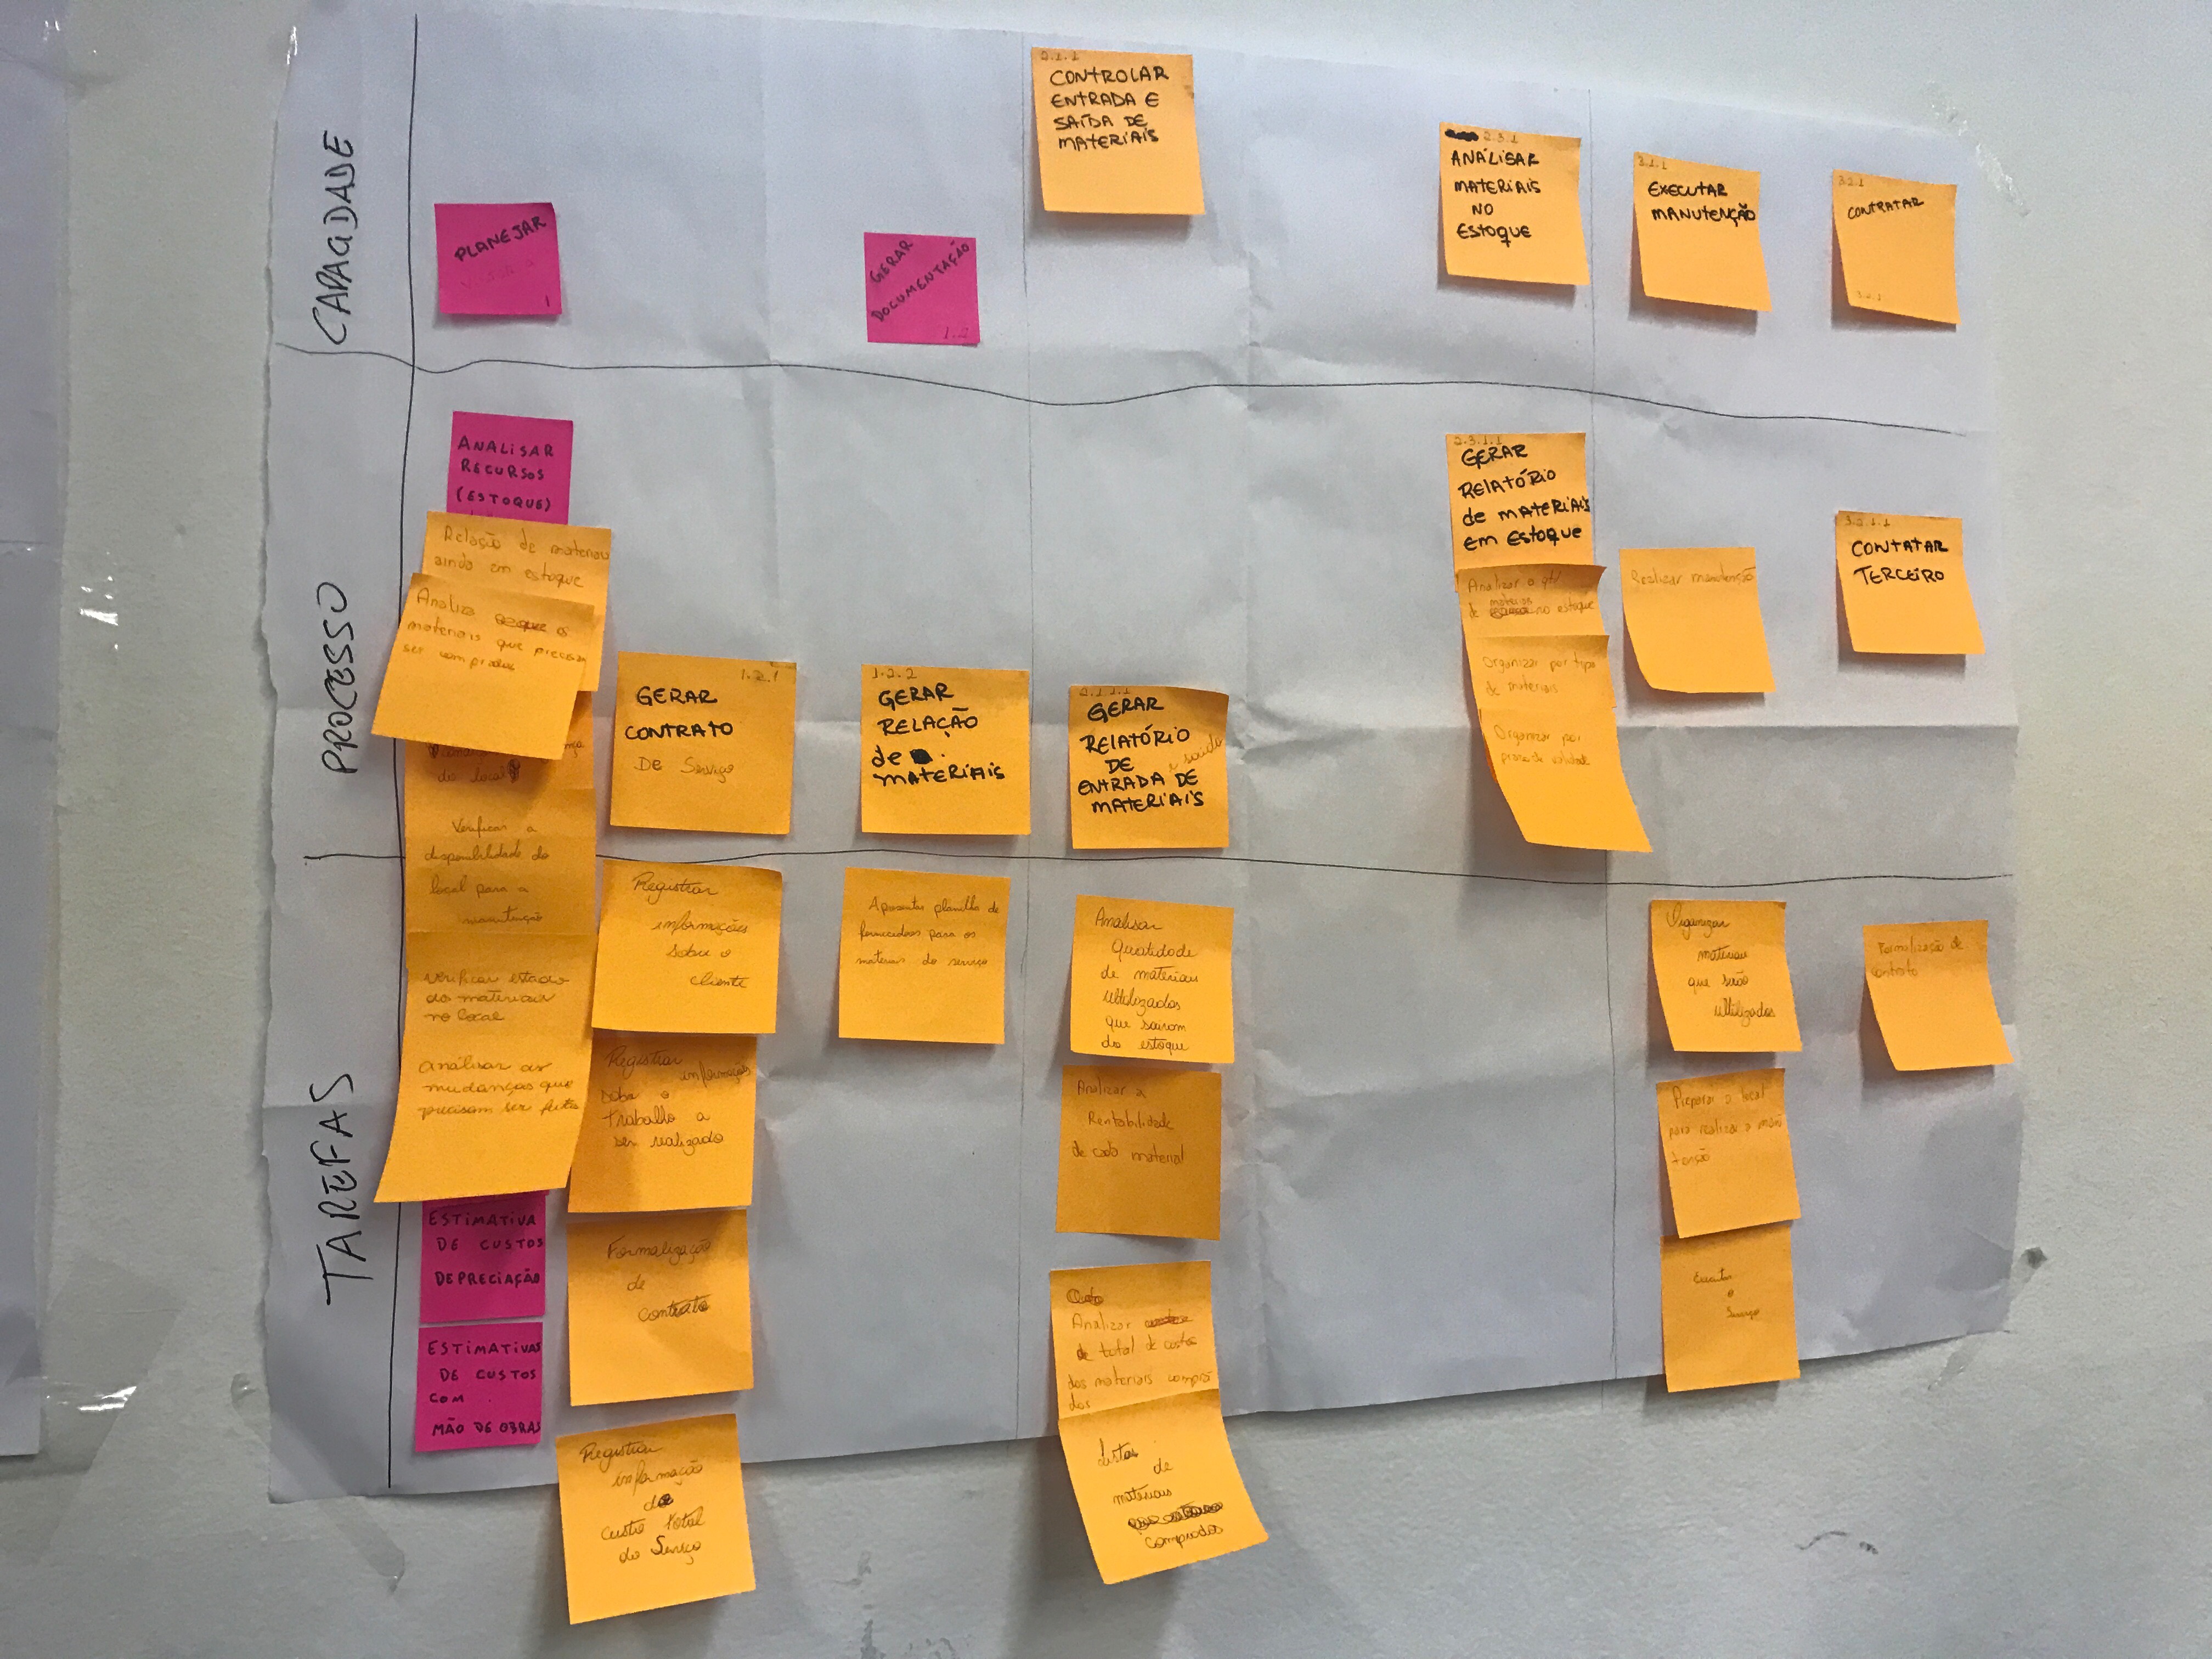 CAPACIDADE
PLANEJAR
1
GERAR
DOCUMENTAÇÃO
1.2
2.1.1
CONTROLAR
ENTRADA E
SAÍDA DE
MATERIAIS
2.3.1
ANÁLISAR
MATERIAIS
NO
ESTOQUE
3.1.1
EXECUTAR
MANUTENÇÃO
3.2.1
CONTRATAR
3.2.1
PROCESSO
ANALISAR
RECURSOS
(ESTOQUE)
Relação de materiau
ainda em estoque
Analiza os
materiais que precisam
ser comprados
do local
Verificar a
disponibilidade do
local para a
manutenção
Verificar estado
do materiais
no local
Análisar as
mudanças que
precisam ser feitas
1.2.1
GERAR
CONTRATO
DE Serviço
1.2.2
GERAR
RELAÇÃO
de
MATERIAIS
2.1.1.1
GERAR
RELATÓRIO
DE e saída
ENTRADA DE
MATERIAIS
2.3.1.1
GERAR
RELATÓRIO
de MATERIAIS
Em Estoque
Analizar a qtd
de materias no estoque
Organizar por tipo
de materiais
Organizar por
prazo de validade
Realizar manutenção
3.2.1.1
CONTATAR
TERCEIRO
TAREFAS
ESTIMATIVA
DE CUSTOS
DEPRECIAÇÃO
ESTIMATIVAS
DE CUSTOS
COM
MÃO DE OBRAS
Registrar
informações
sobre o
cliente
Registrar
informações
sobre o
trabalho a
ser realizado
Formalização
de
contrato
Registrar
informação
de
custo total
do Serviço
Apresentar planilha de
fornecedores para os
materiais do serviço
Analisar
Quatidade
de materiau
ultilizados
que sairam
do estoque
Analizar a
Rentabilidade
de cada material
Analizar
de total de custos
dos materiais compra
dos
Listas
de
materiais
comprados
Organizar
materiau
que serão
ultilizados
Preparar o local
para realizar a manu
tenção
Executar
o
Serviço
Formalização de
contrato